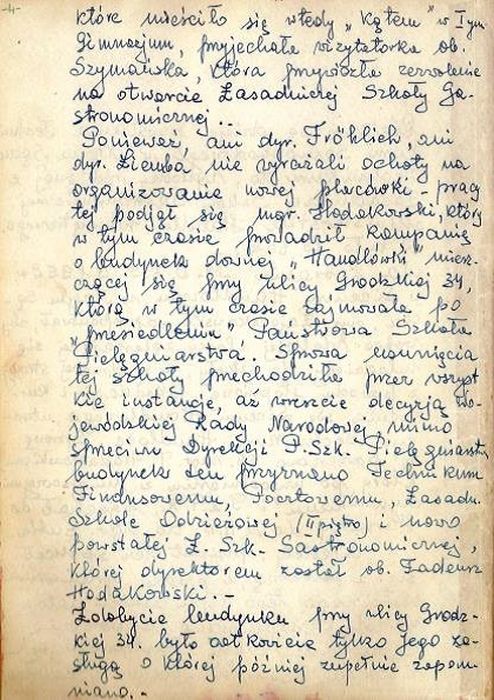 -4-
które mieściło się wtedy „kątem" w I ym
Gimnazjum, przyjechała wizytatorka ob.
Szymańska, która przywiozła zezwolenie
na otwarcie Zasadniczej Szkoły Ga-
stronomicznej..
Ponieważ, ani dyr. Fröhlich, ani
dyr. Ziemba nie wyrażali ochoty na
organizowanie nowej placówki - pracy
tej podjął się mgr. Hodakowski, który
w tym czasie prowadził kampanię
o budynek dawnej „Handlówki" miesz-
czącej się przy ulicy Grodzkiej 34,
którą w tym czasie zajmowała po
„przesiedleniu" Państwowa Szkoła
Pielęgniarstwa. Sprawa usunięcia
tej szkoły przechodziła przez wszyst
kie instancje, aż wreszcie decyzją Wo-
jewódzkiej Rady Narodowej, mimo
sprzeciwu Dyrekcji P.Szk. Pielęgniarstwa
budynek ten przyznano Technikum
Finansowemu, Pocztowemu, Zasadn.
Szkole Odzieżowej (II piętro) i nowo
powstałej Z. Szk. Gastronomicznej,
której dyrektorem został ob. Tadeusz
Hodakowski. -
Zdobycie budynku przy ulicy Grodz-
kiej 34. było całkowicie tylko Jego za-
sługą o której później zupełnie zapom-
niano. -